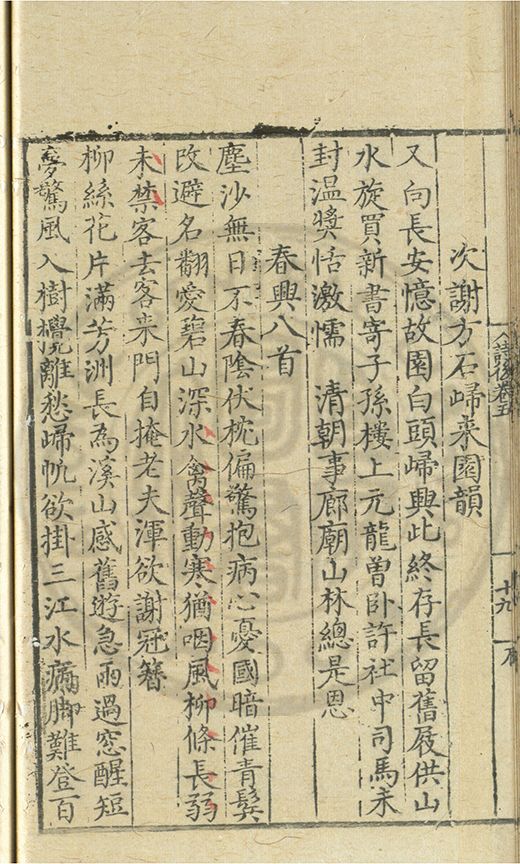 詩後卷五
十九
次謝方石歸来園韻
又向長安憶故園白頭歸興此終存長留舊屐供山
水旋買新書寄子孫樓上元龍曽卧許社中司馬未
封温奬恬激懦　清朝事廊廟山林總是恩
春興八首
塵沙無日不春陰伏枕偏驚抱病心憂國暗催青鬂
改避名翻愛碧山深水禽聲動寒猶咽風柳條長弱
未禁客去客来門自掩老夫渾欲謝冠簪
柳絲花片滿芳洲長為溪山感舊遊急雨過窓醒短
夢驚風入樹攪離愁歸帆欲掛三江水病脚難登百